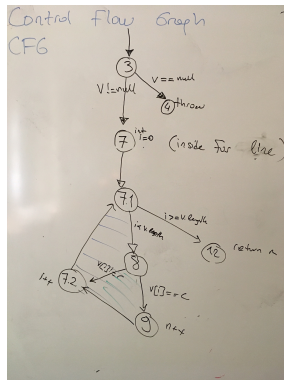 Control Flow Graph
CFG
3
V == null
V != null
4 throw
7 int i=0 (inside for line)
7.1
i >= v.length
i < v.length
12 return n
8
v[i]!=c
i++
7.2
v[i]==c
9 n++